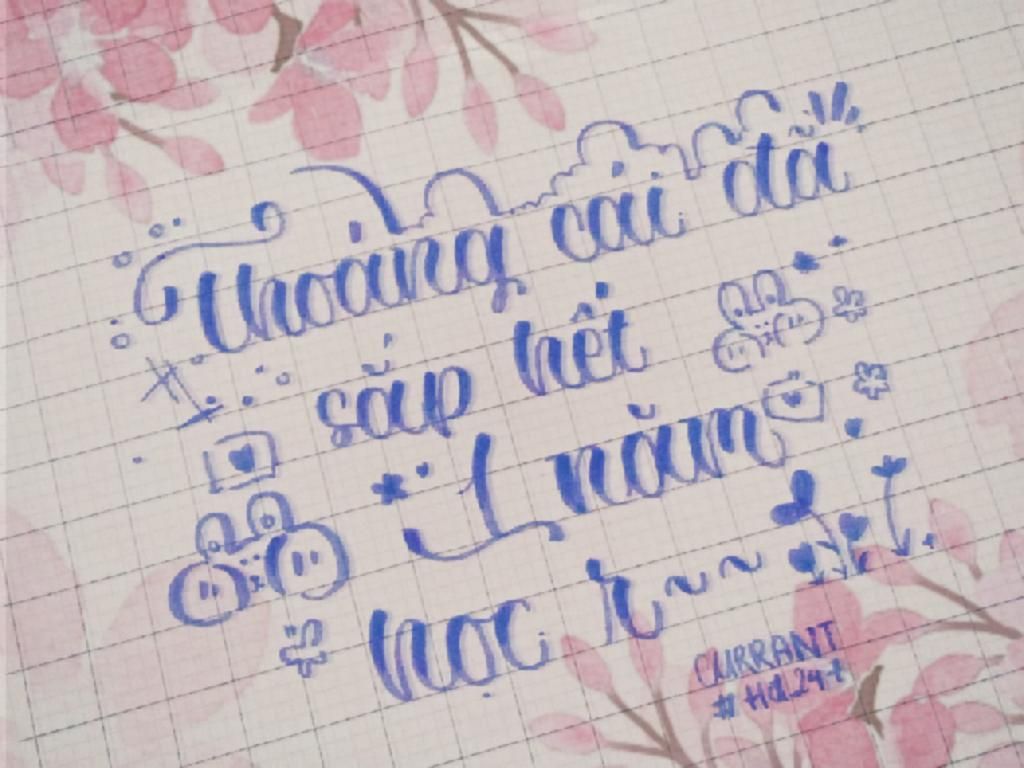 thoáng cái đã
sắp hết
1 năm
học r~~~
CURRANT